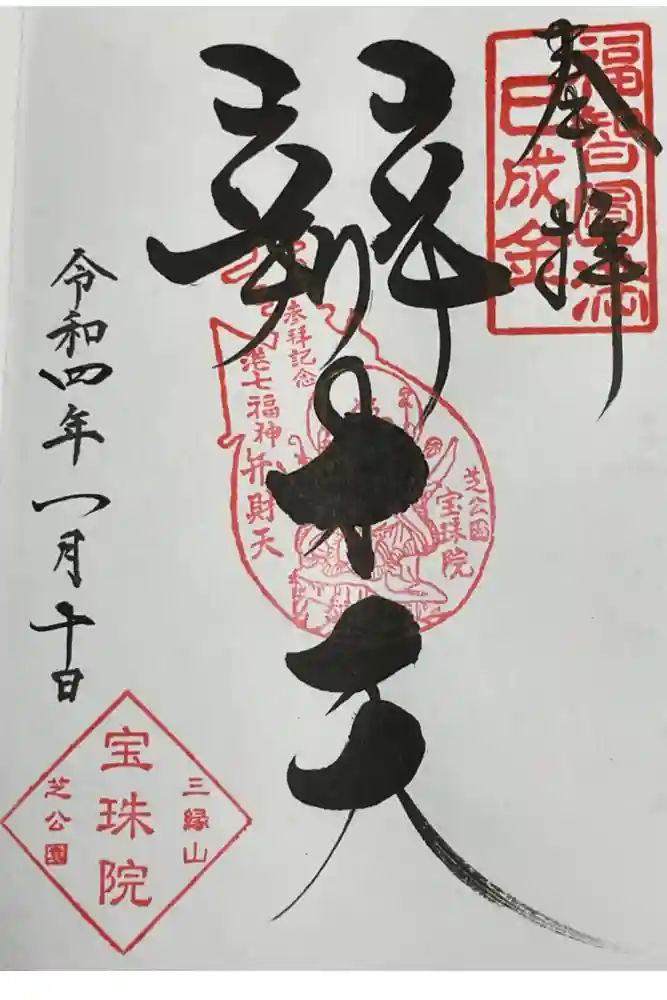 奉拝
福智圓満
巳成金
辨才天
参拝記念
港七福神弁財天
芝公園
宝珠院
令和四年一月十日
三縁山
宝珠院
芝公園